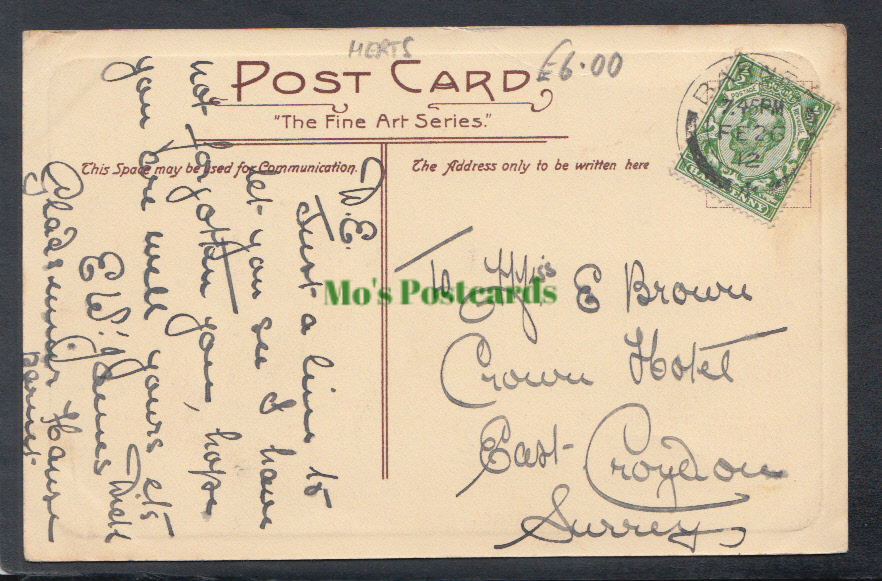 HERTS
£6.00
POST CARD
"The Fine Art Series."
This Space may be used for Communication.
The Address only to be written here
BARNET
7.45PM
FE 26
12
POSTAGE
HALFPENNY
D. E.
Just a line to
let you see I have
not forgotten you, hope
you are well yours etc
Dick
E W James
Gladsmuir House
Barnet
To Miss E Brown
Crown Hotel
East Croydon
Surrey
Mo's Postcards